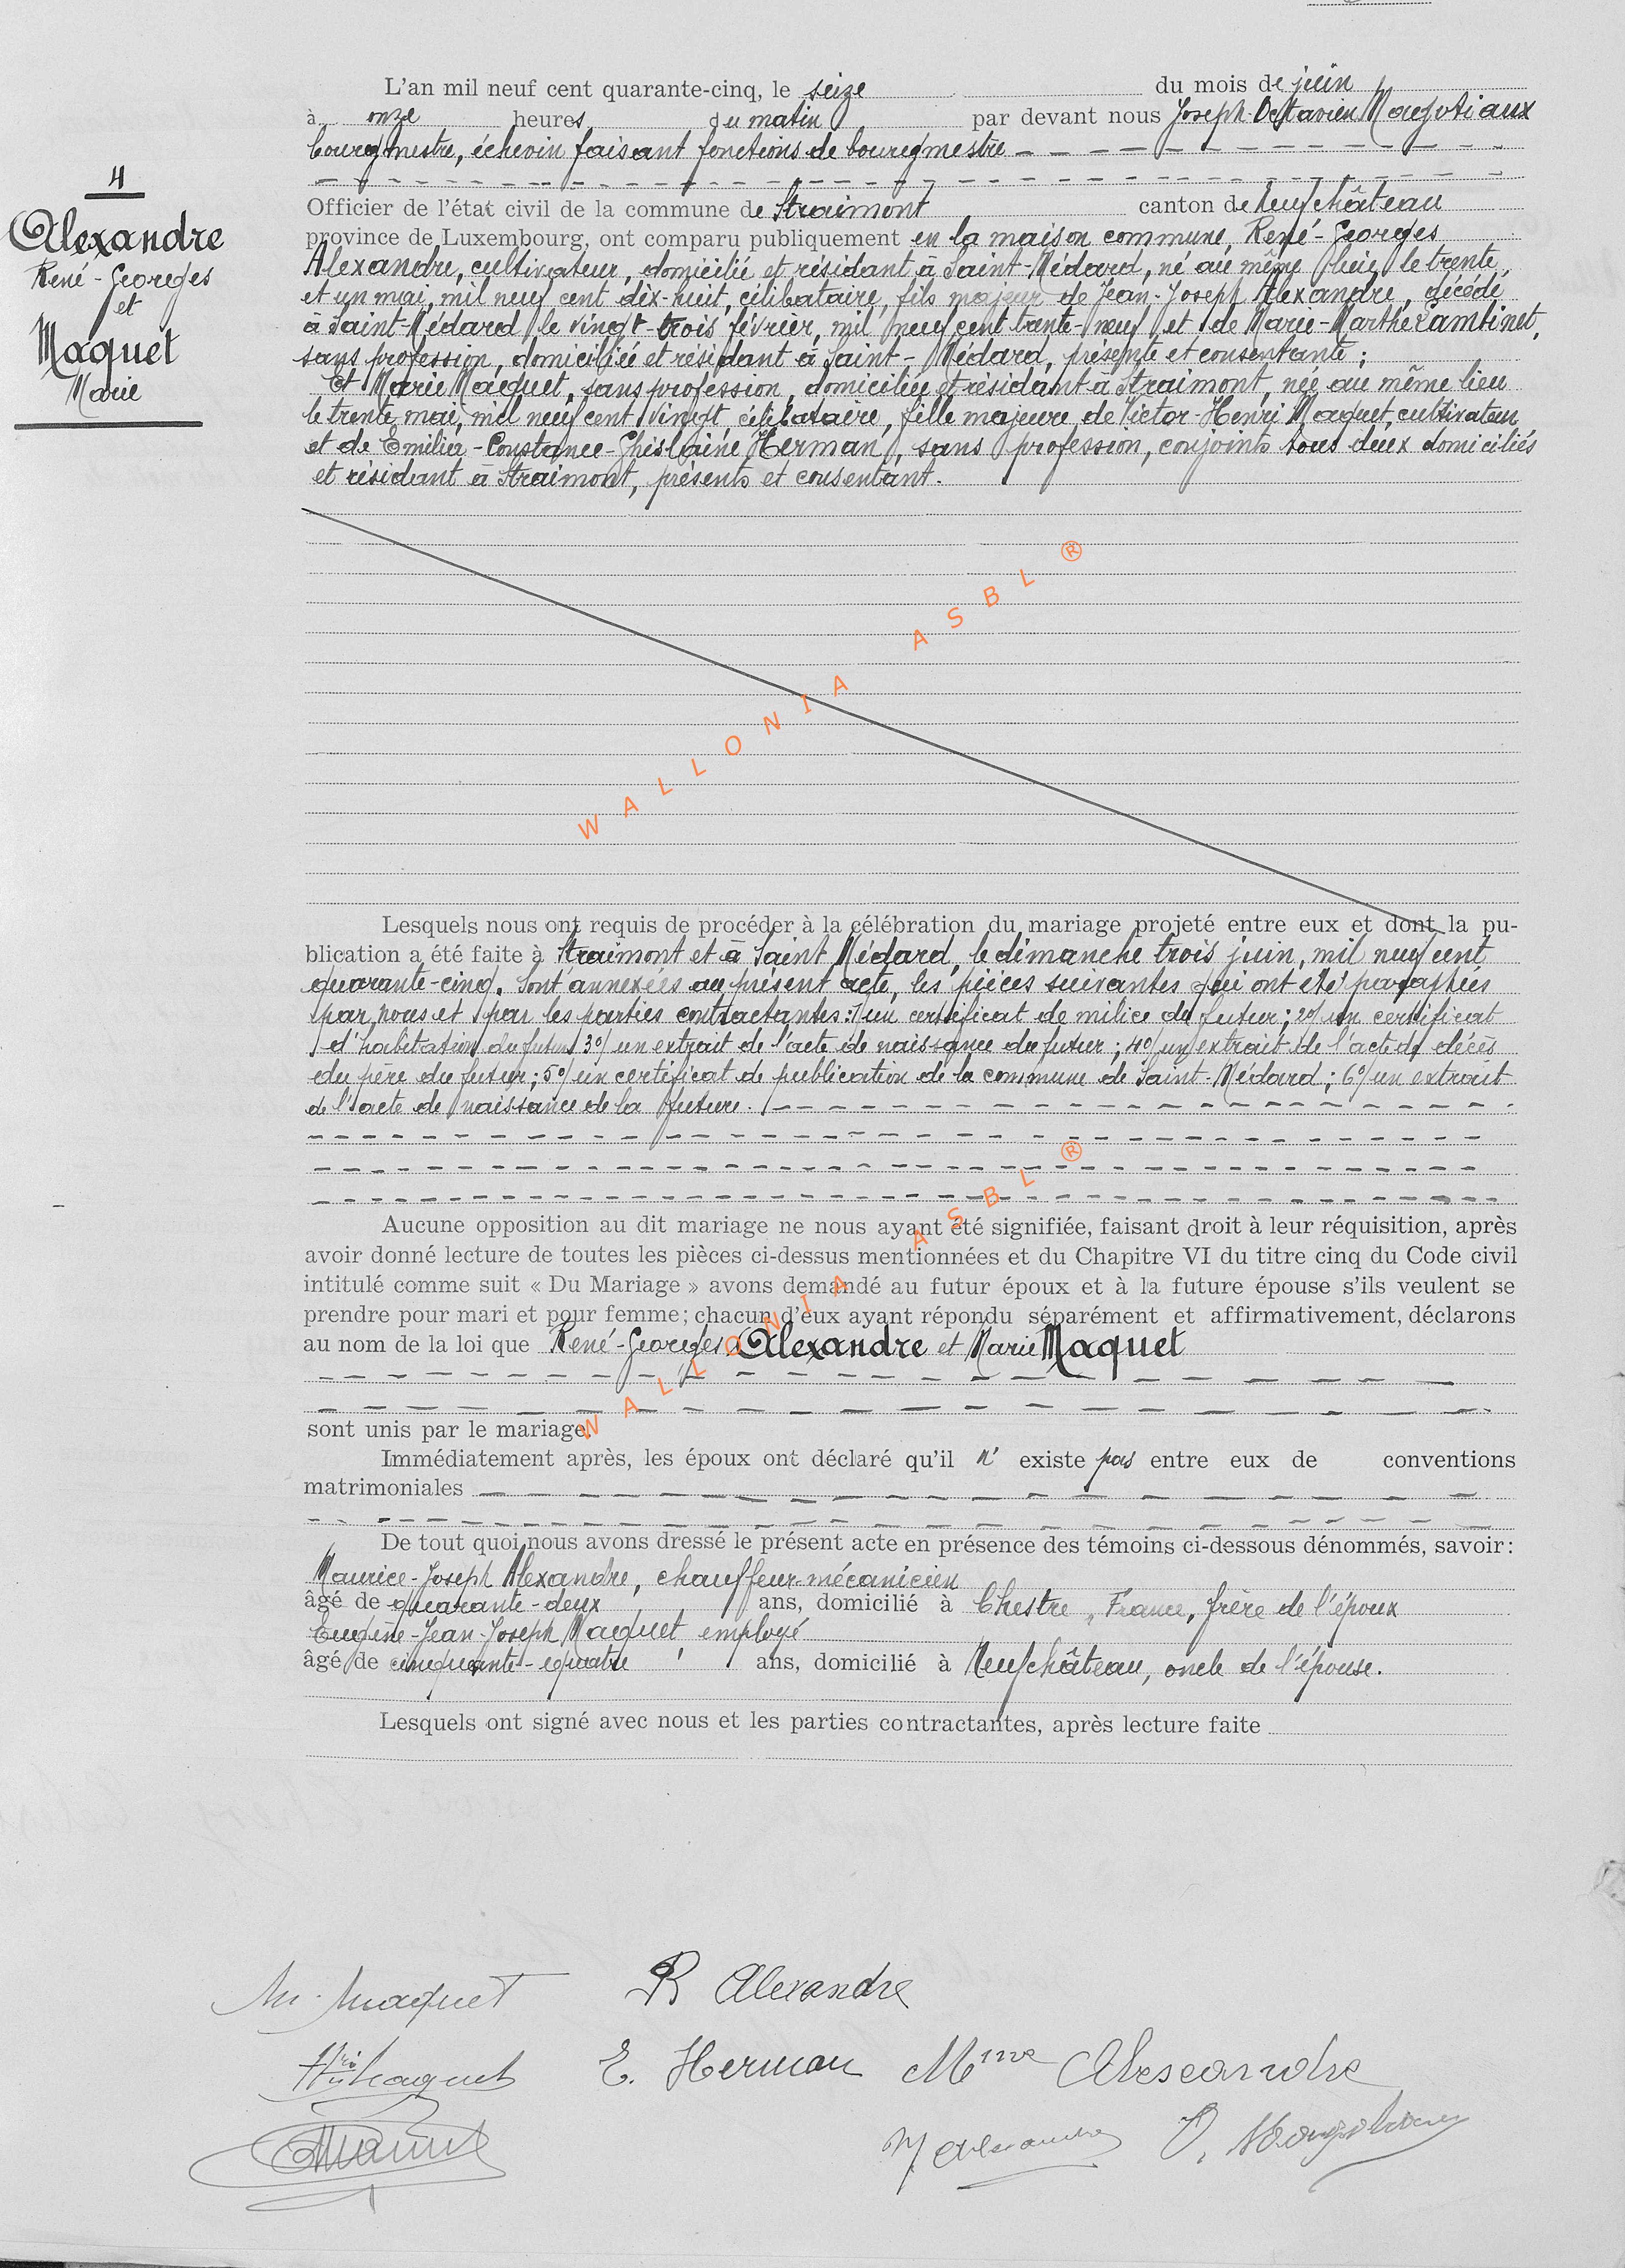 4
Alexandre
René-Georges
et
Maquet
Marie
L'an mil neuf cent quarante-cinq, le seize du mois de juin
à onze heures du matin par devant nous Joseph-Octavien
bourgmestre, échevin faisant fonctions de bourgmestre
Officier de l'état civil de la commune de Straimont canton de Neufchâteau
province de Luxembourg, ont comparu publiquement en la maison commune, René-Georges
Alexandre, cultivateur, domicilié et résidant à Saint-Médard, né au même lieu le trente
et un mai, mil neuf cent dix-huit, célibataire, fils majeur de Jean-Joseph Alexandre, décédé
à Saint-Médard le vingt-trois février, mil neuf cent trente-neuf et de Marie-Marthe Lambinet,
sans profession, domiciliée et résidant à Saint-Médard, présente et consentante ;
Et Marie Maquet, sans profession, domiciliée et résidant à Straimont, née au même lieu
le trente mai, mil neuf cent vingt célibataire, fille majeure de Victor-Henri Maquet, cultivateur
et de Emilie-Constance-Ghislaine Herman, sans profession, conjoints tous deux domiciliés
et résidant à Straimont, présents et consentant.
WALLONIA ASBL ®
Lesquels nous ont requis de procéder à la célébration du mariage projeté entre eux et dont la pu-
blication a été faite à Straimont et à Saint Médard, le dimanche trois juin, mil neuf cent
quarante-cinq. Sont annexées au présent acte, les pièces suivantes qui ont été paraphées
par nous et par les parties contractantes : 1/ un certificat de milice du futur ; 2°/ un certificat
d'habitation du futur 3°/ un extrait de l'acte de naissance du futur ; 4°/ un extrait de l'acte de décès
du père du futur ; 5°/ un certificat de publication de la commune de Saint-Médard ; 6°/ un extrait
de l'acte de naissance de la future.
Aucune opposition au dit mariage ne nous ayant été signifiée, faisant droit à leur réquisition, après
avoir donné lecture de toutes les pièces ci-dessus mentionnées et du Chapitre VI du titre cinq du Code civil
intitulé comme suit « Du Mariage » avons demandé au futur époux et à la future épouse s'ils veulent se
prendre pour mari et pour femme; chacun d'eux ayant répondu séparément et affirmativement, déclarons
au nom de la loi que René-Georges Alexandre et Marie Maquet
WALLONIA ASBL ®
sont unis par le mariage.
Immédiatement après, les époux ont déclaré qu'il n' existe pas entre eux de conventions
matrimoniales
De tout quoi nous avons dressé le présent acte en présence des témoins ci-dessous dénommés, savoir:
Maurice-Joseph Alexandre, chauffeur-mécanicien
âgé de quarante-deux ans, domicilié à Chestre, France, frère de l'époux
Eugène-Jean-Joseph Maquet employé
âgé de cinquante-quatre ans, domicilié à Neufchâteau, oncle de l'épouse.
Lesquels ont signé avec nous et les parties contractantes, après lecture faite
M. Maquet R Alexandre
Hri Maquet E. Herman Mme Alexandre
M Alexandre